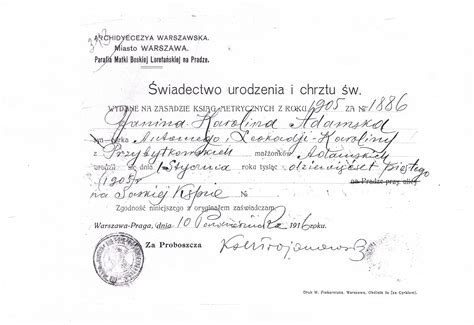 ARCHIDYECEZYA WARSZAWSKA.
Miasto WARSZAWA.
Parafia Matki Boskiej Loretańskiej na Pradze.
Świadectwo urodzenia i chrztu św.
WYDANE NA ZASADZIE KSIĄG METRYCZNYCH Z ROKU 1905 ZA № 1886
Janina-Karolina Adamska
córka Antoniego i Leokadji-Karoliny
z Przybytkowskich małżonków Adamskich
urodził się dnia 1 Stycznia roku tysiąc dziewięćset piątego
(1905) na Pradze przy ulicy
na Saskiej Kępie
Zgodność niniejszego z oryginałem zaświadczam.
Warszawa-Praga, dnia 10 Października 1916 roku.
Za Proboszcza
Druk W. Piekarniaka, Warszawa,